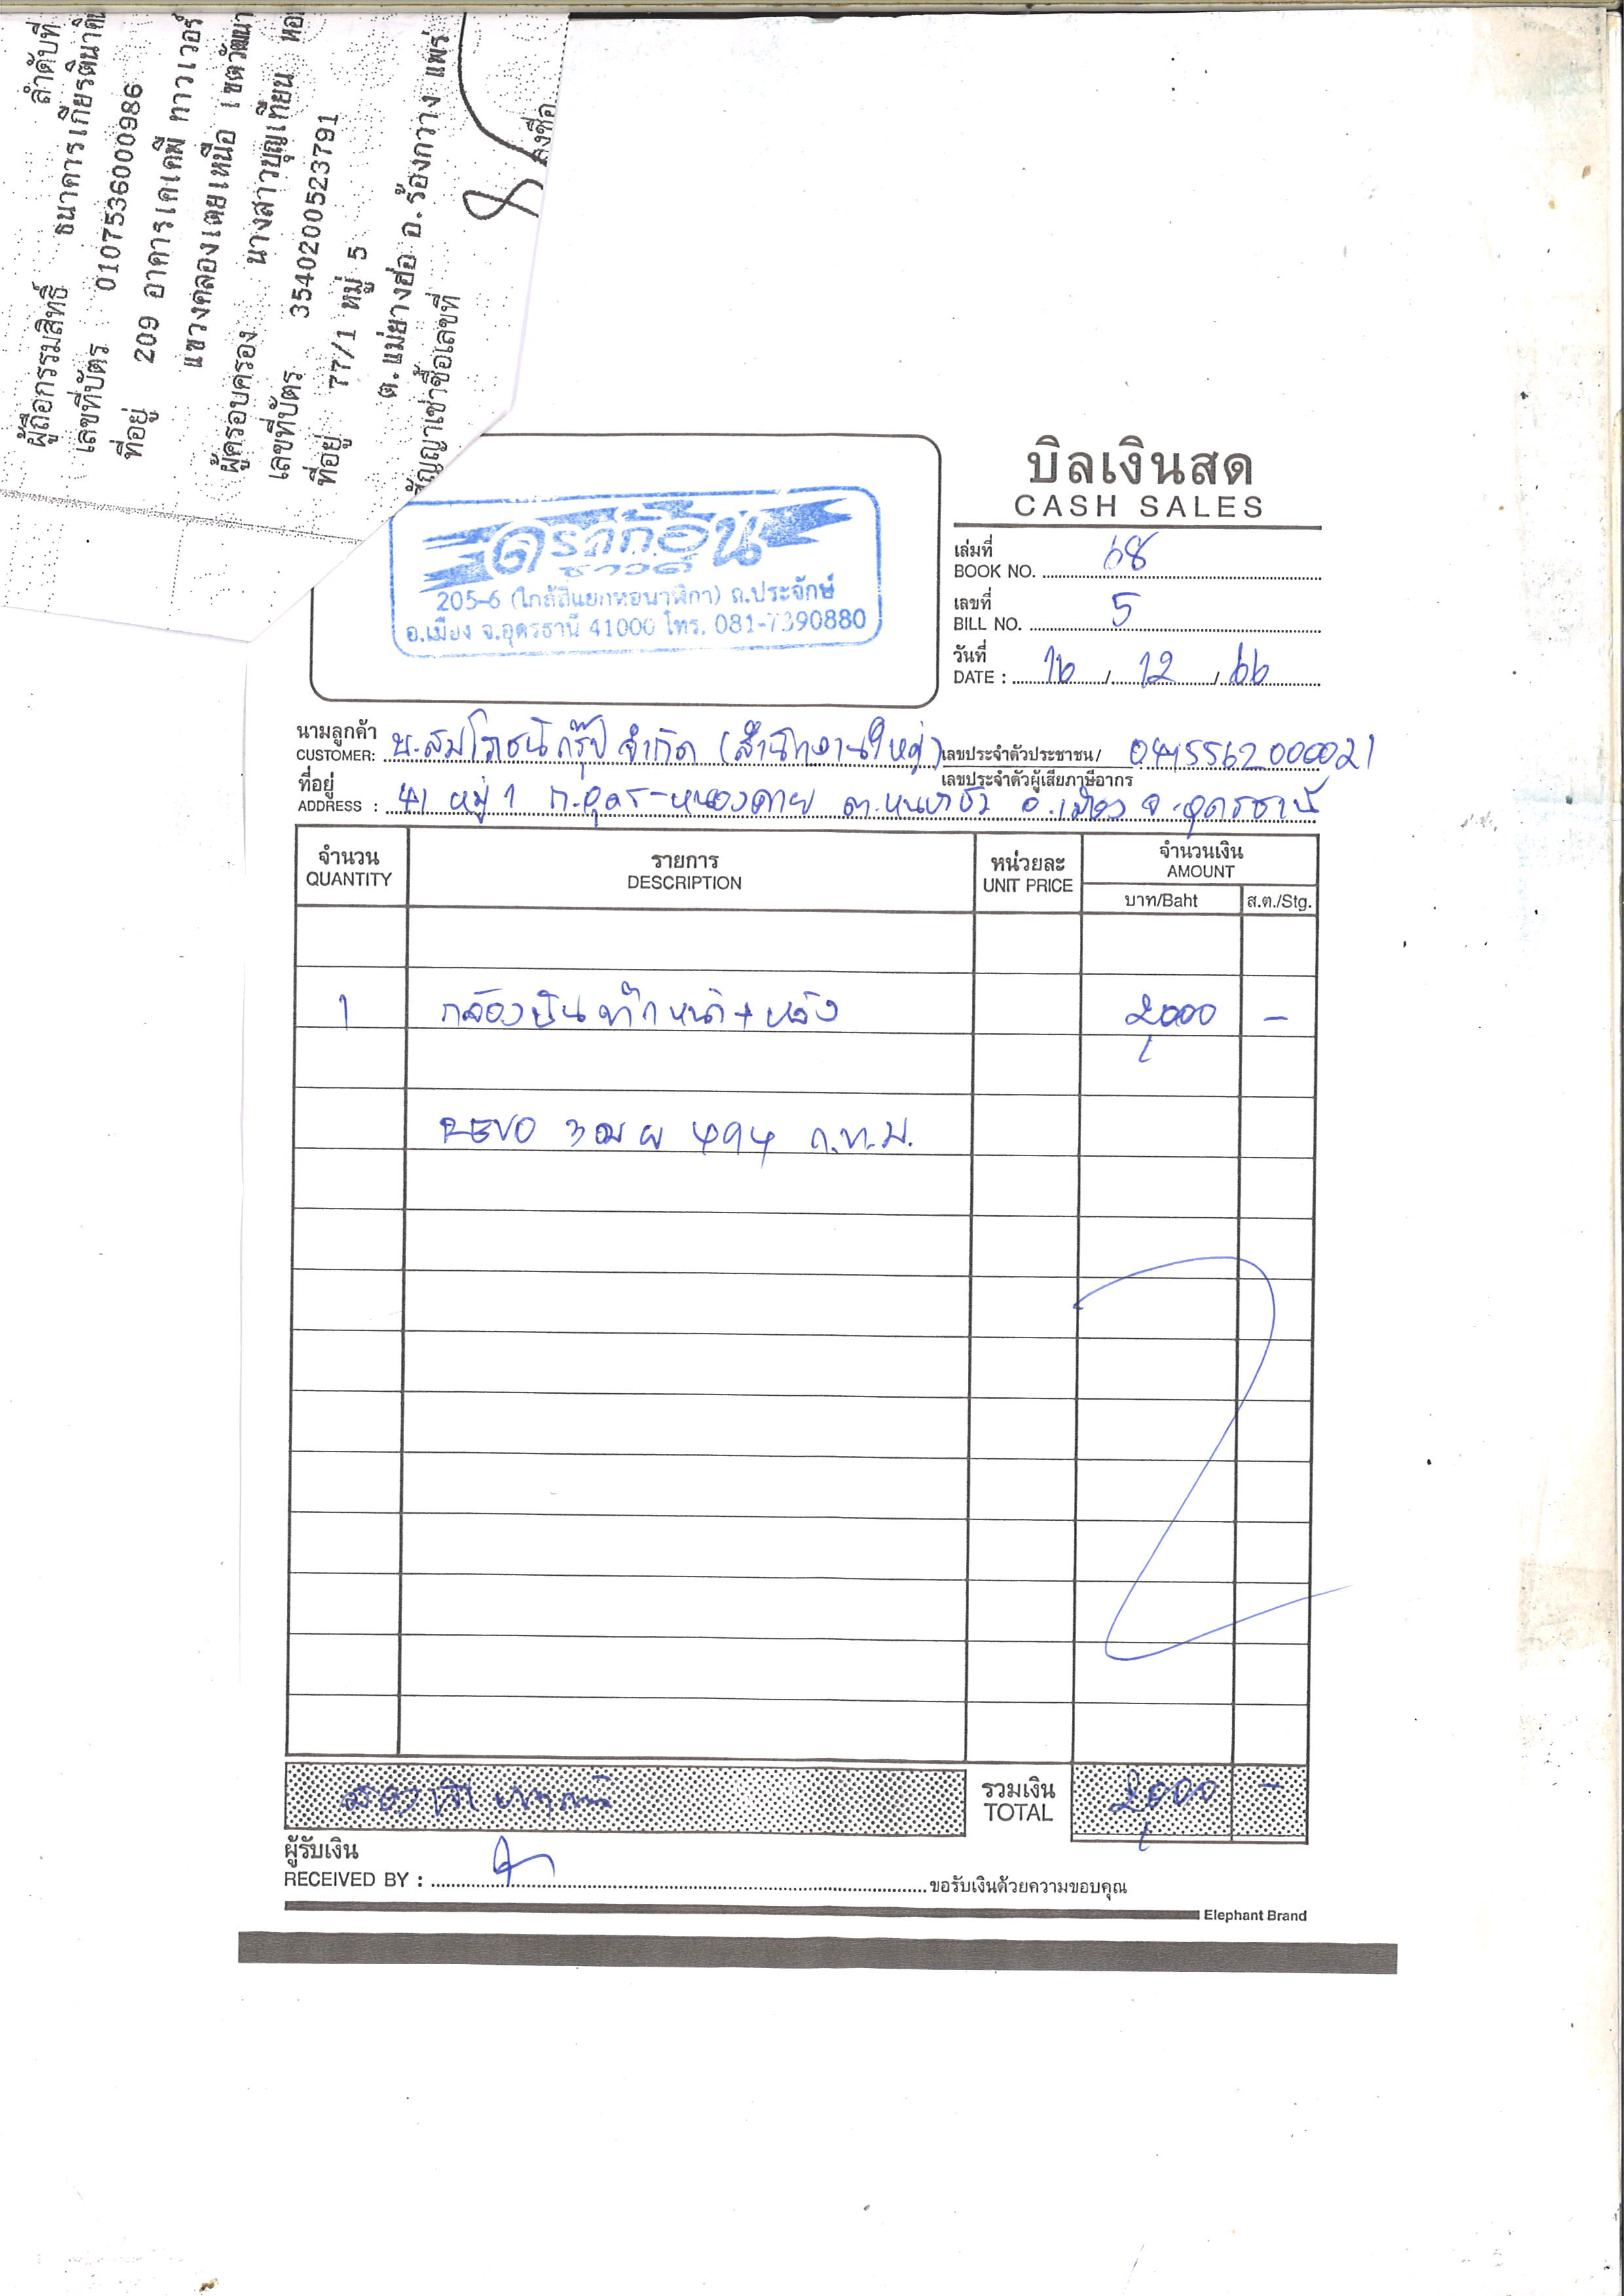 ลำดับที่
ผู้ถือกรรมสิทธิ์ ธนาคารเกียรตินาคิน
เลขที่บัตร 0107536000986
ที่อยู่ 209 อาคารเคเคพี ทาวเวอร์
แขวงคลองเตยเหนือ เขตวัฒนา
ผู้ครอบครอง นางสาวบุญเทียน
เลขที่บัตร 3540200523791
ที่อยู่ 77/1 หมู่ 5
ต.แม่ยางฮ่อ อ.ร้องกวาง แพร่
สัญญาเช่าซื้อเลขที่
ลงชื่อ
ดราก้อน
ซาวด์
205-6 (ใกล้สี่แยกหอนาฬิกา) ถ.ประจักษ์
อ.เมือง จ.อุดรธานี 41000 โทร. 081-7390880
บิลเงินสด
CASH SALES
เล่มที่
BOOK NO. 68
เลขที่
BILL NO. 5
วันที่
DATE : 16 / 12 / 66
นามลูกค้า
CUSTOMER: บ.สมโภชน์กรุ๊ป จำกัด (สำนักงานใหญ่) เลขประจำตัวประชาชน/
เลขประจำตัวผู้เสียภาษีอากร
ที่อยู่
ADDRESS : 41 หมู่ 1 ถ.อุดร-หนองคาย ต.หมากแข้ง อ.เมือง จ.อุดรธานี
จำนวน รายการ หน่วยละ จำนวนเงิน
QUANTITY DESCRIPTION UNIT PRICE AMOUNT
บาท/Baht ส.ต./Stg.
1 กล้องบันทึกหน้า+หลัง 2,000 -
REVO ก.ท.ม.
สองพันบาทถ้วน รวมเงิน 2,000 -
TOTAL
ผู้รับเงิน
RECEIVED BY : ขอรับเงินด้วยความขอบคุณ
Elephant Brand